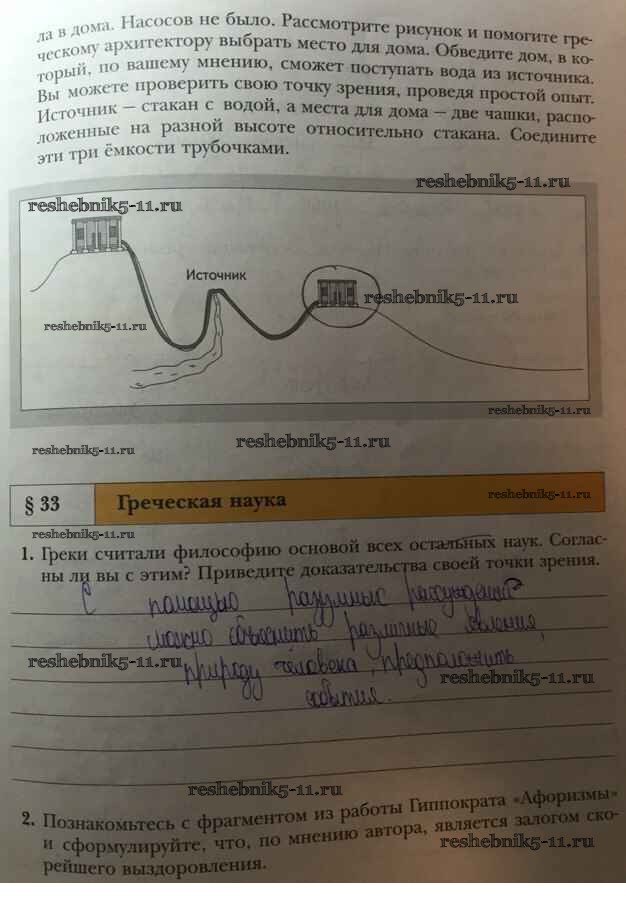 ла в дома. Насосов не было. Рассмотрите рисунок и помогите гре-
ческому архитектору выбрать место для дома. Обведите дом, в ко-
торый, по вашему мнению, сможет поступать вода из источника.
Вы можете проверить свою точку зрения, проведя простой опыт.
Источник — стакан с водой, а места для дома — две чашки, распо-
ложенные на разной высоте относительно стакана. Соедините
эти три ёмкости трубочками.
reshebnik5-11.ru
reshebnik5-11.ru
Источник
reshebnik5-11.ru
reshebnik5-11.ru
reshebnik5-11.ru
reshebnik5-11.ru
reshebnik5-11.ru
§ 33 Греческая наука reshebnik5-11.ru
reshebnik5-11.ru
1. Греки считали философию основой всех остальных наук. Соглас-
ны ли вы с этим? Приведите доказательства своей точки зрения.
С помощью разумных рассуждений
можно объяснить различные явления,
природу человека, предположить
reshebnik5-11.ru
reshebnik5-11.ru
события.
reshebnik5-11.ru
2. Познакомьтесь с фрагментом из работы Гиппократа «Афоризмы»
и сформулируйте, что, по мнению автора, является залогом ско-
рейшего выздоровления.
reshebnik5-11.ru